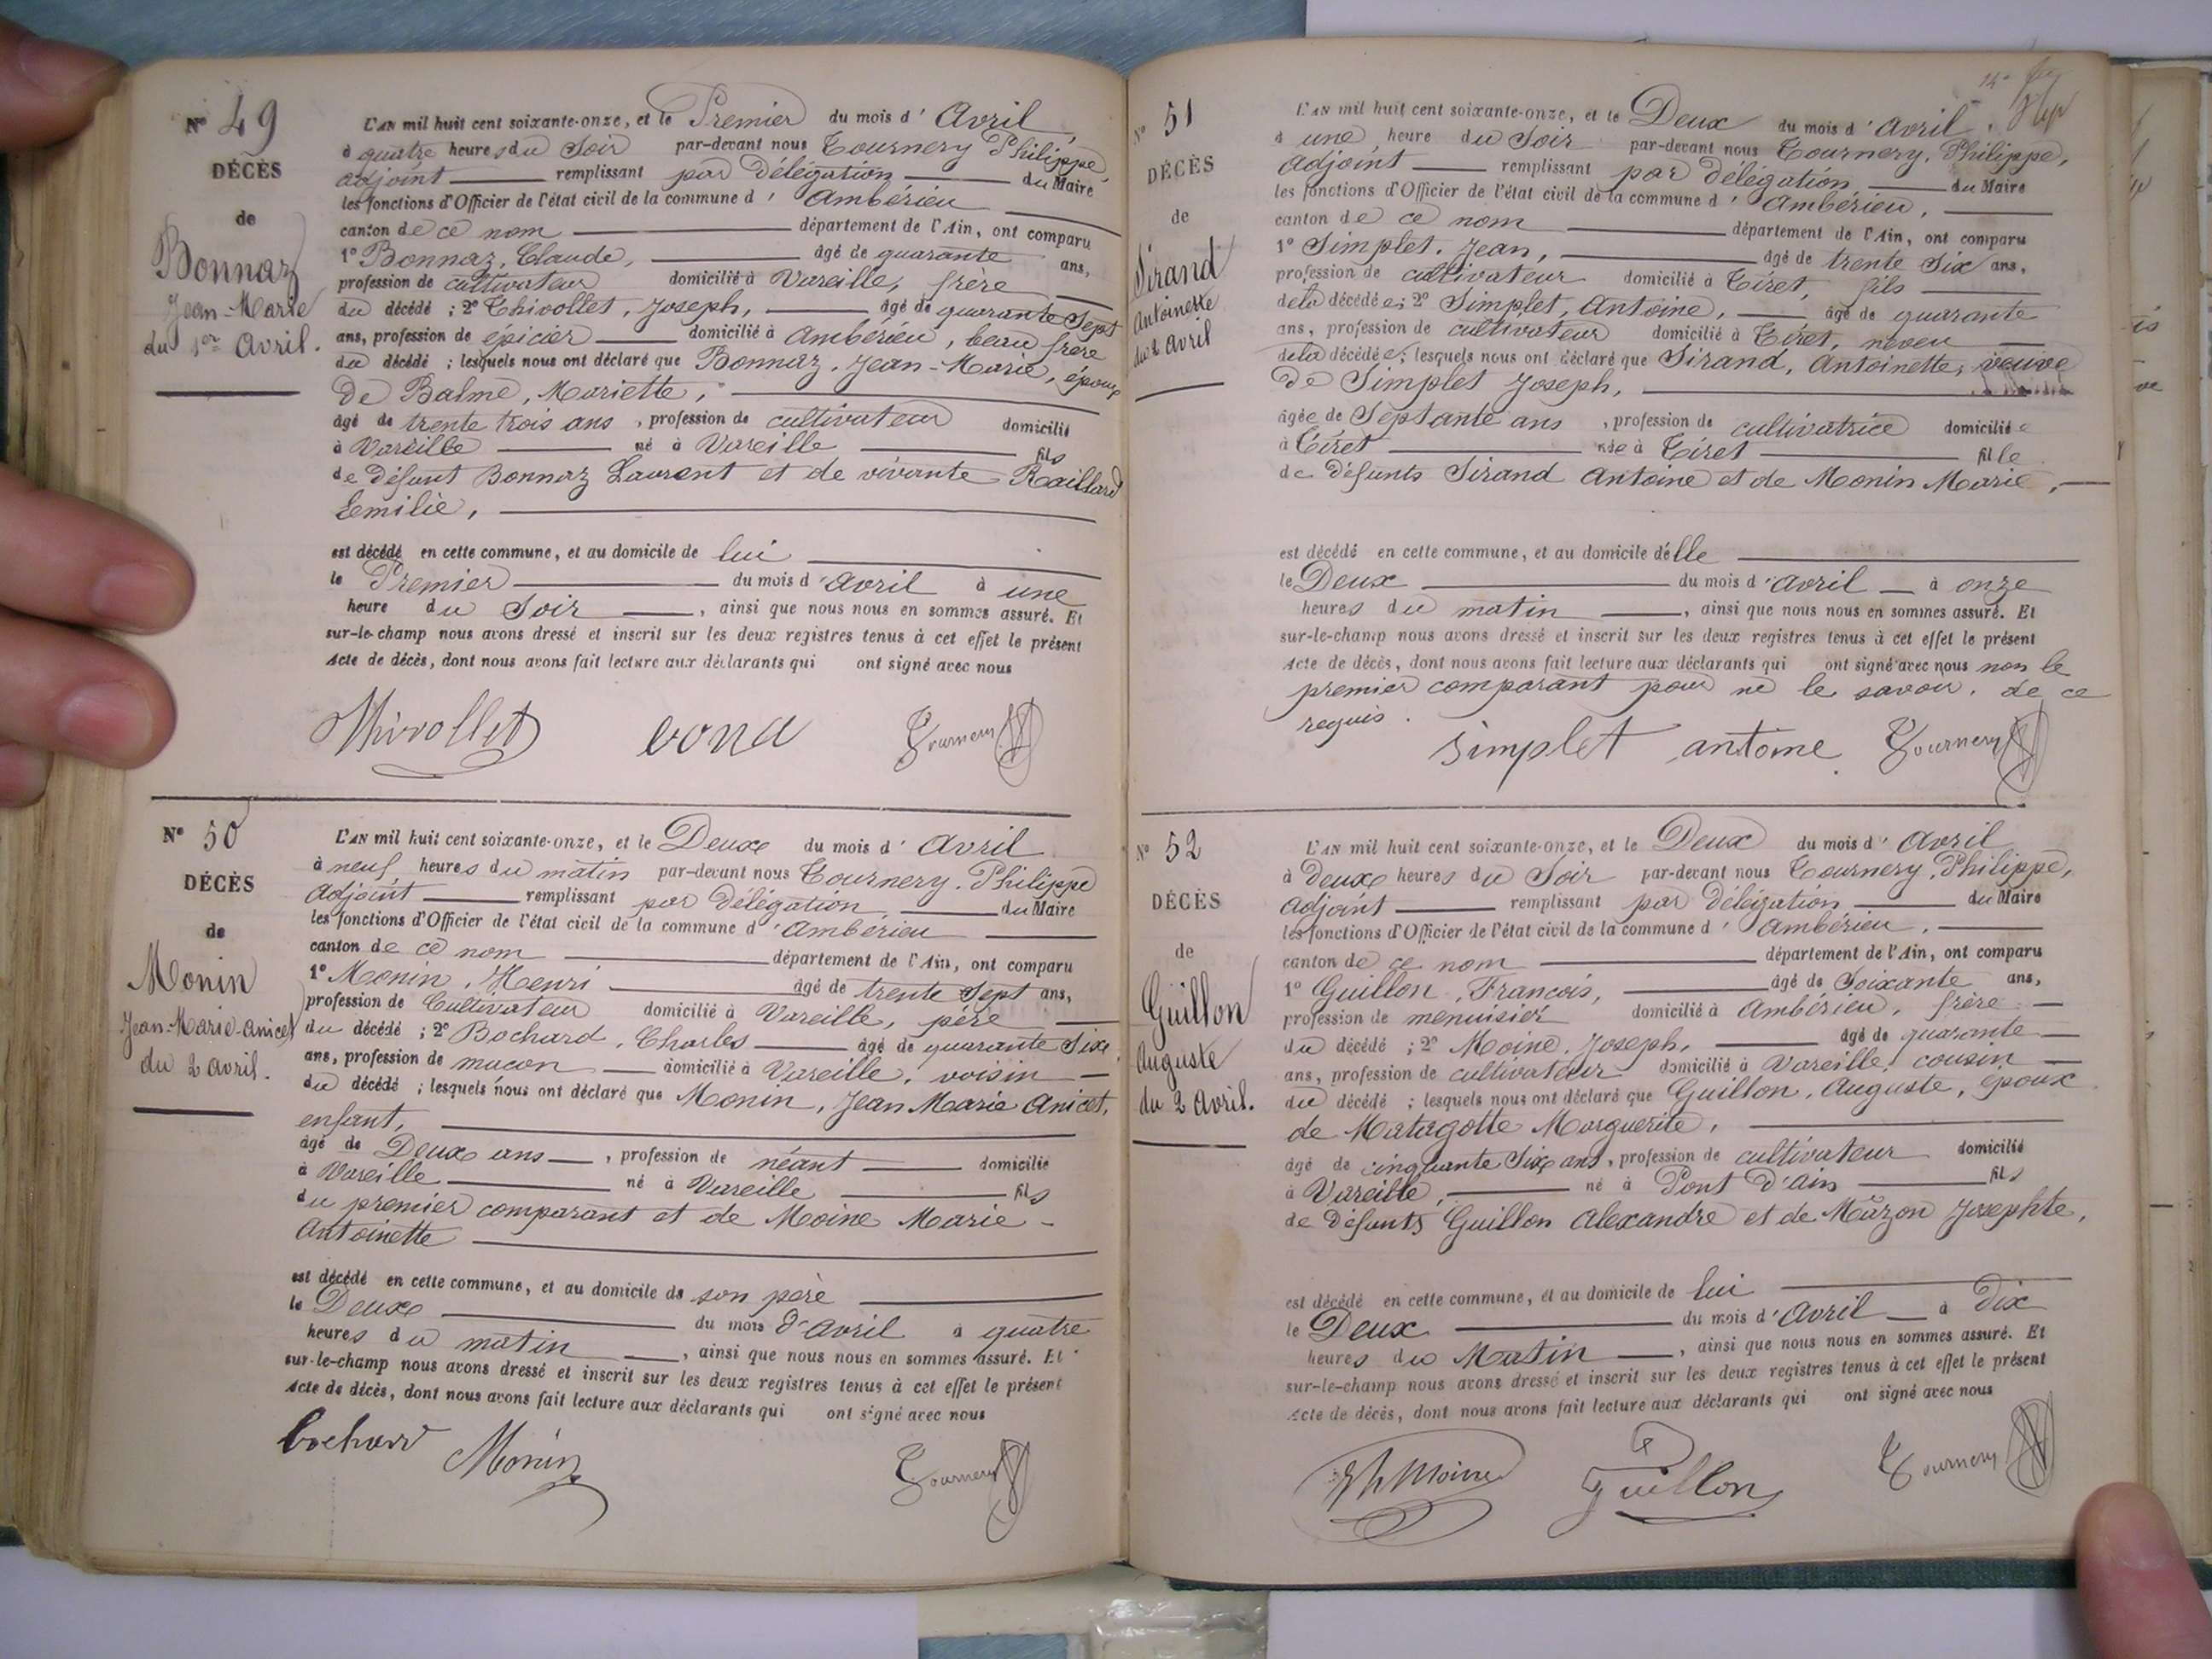 N° 49
DÉCÈS
de
Bonnaz
Jean-Marie
du 1er Avril.
L'AN mil huit cent soixante-onze, et le Premier du mois d' Avril,
à quatre heures du Soir par-devant nous Tournery Philippe,
adjoint remplissant par délégation du Maire
les fonctions d'Officier de l'état civil de la commune d' Ambérieu
canton de ce nom département de l'Ain, ont comparu
1° Bonnaz, Claude, âgé de quarante ans,
profession de cultivateur domicilié à Vareille, frère
du décédé ; 2° Thivollet, Joseph, âgé de quarante Sept
ans, profession de épicier domicilié à Ambérieu, beau frère
du décédé ; lesquels nous ont déclaré que Bonnaz, Jean-Marie, époux
de Balme, Mariette,
âgé de trente trois ans, profession de cultivateur domicilié
à Vareille né à Vareille fils
de défunt Bonnaz Laurent et de vivante Raillard
Emilie,
est décédé en cette commune, et au domicile de lui
le Premier du mois d'avril à une
heure du Soir, ainsi que nous nous en sommes assuré. Et
sur-le-champ nous avons dressé et inscrit sur les deux registres tenus à cet effet le présent
Acte de décès, dont nous avons fait lecture aux déclarants qui ont signé avec nous
Thivollet Tournery
N° 50
DÉCÈS
de
Monin
Jean-Marie-Anicet
du 2 avril.
L'AN mil huit cent soixante-onze, et le Deux du mois d' Avril
à neuf heures du matin par-devant nous Tournery, Philippe
Adjoint remplissant par délégation, du Maire
les fonctions d'Officier de l'état civil de la commune d' Ambérieu
canton de ce nom département de l'Ain, ont comparu
1° Monin, Henri âgé de trente Sept ans,
profession de Cultivateur domicilié à Vareille, père
du décédé ; 2° Bochard, Charles âgé de quarante Six
ans, profession de maçon domicilié à Vareille, voisin
du décédé ; lesquels nous ont déclaré que Monin, Jean Marie Anicet,
enfant,
âgé de Deux ans, profession de néant domicilié
à Vareille né à Vareille fils
du premier comparant et de Moine Marie-
Antoinette
est décédé en cette commune, et au domicile de son père
le Deux du mois d'avril à quatre
heures du matin, ainsi que nous nous en sommes assuré. Et
sur-le-champ nous avons dressé et inscrit sur les deux registres tenus à cet effet le présent
Acte de décès, dont nous avons fait lecture aux déclarants qui ont signé avec nous
bochard Monin Tournery
N° 51
DÉCÈS
de
Sirand
Antoinette
du 2 avril
L'AN mil huit cent soixante-onze, et le Deux du mois d' Avril,
à une heure du Soir par-devant nous Tournery, Philippe,
Adjoint remplissant par délégation, du Maire
les fonctions d'Officier de l'état civil de la commune d' Ambérieu,
canton de ce nom département de l'Ain, ont comparu
1° Simplet, Jean, âgé de trente Six ans,
profession de cultivateur domicilié à Tiret, fils
de la décédée ; 2° Simplet, Antoine, âgé de quarante
ans, profession de cultivateur domicilié à Tiret, neveu
de la décédée ; lesquels nous ont déclaré que Sirand, Antoinette, veuve
de Simplet Joseph,
âgée de Septante ans, profession de cultivatrice domiciliée
à Tiret née à Tiret fille
de défunts Sirand Antoine et de Monin Marie,
est décédé en cette commune, et au domicile d'elle
le Deux du mois d'avril à onze
heures du matin, ainsi que nous nous en sommes assuré. Et
sur-le-champ nous avons dressé et inscrit sur les deux registres tenus à cet effet le présent
Acte de décès, dont nous avons fait lecture aux déclarants qui ont signé avec nous non le
premier comparant pour ne le savoir, de ce
requis.
simplet antoine Tournery
N° 52
DÉCÈS
de
Guillon
Auguste
du 2 Avril.
L'AN mil huit cent soixante-onze, et le Deux du mois d' Avril
à Deux heures du Soir par-devant nous Tournery, Philippe,
Adjoint remplissant par délégation du Maire
les fonctions d'Officier de l'état civil de la commune d' Ambérieu,
canton de ce nom département de l'Ain, ont comparu
1° Guillon, François, âgé de Soixante ans,
profession de menuisier domicilié à Ambérieu, frère
du décédé ; 2° Moine, Joseph, âgé de quarante
ans, profession de cultivateur domicilié à Vareille, cousin
du décédé ; lesquels nous ont déclaré que Guillon, Auguste, époux
de Matagotte Marguerite,
âgé de cinquante Six ans, profession de cultivateur domicilié
à Vareille, né à Pont d'Ain fils
de défunts Guillon Alexandre et de Mazon Josephte,
est décédé en cette commune, et au domicile de lui
le Deux du mois d'Avril à Dix
heures du Matin, ainsi que nous nous en sommes assuré. Et
sur-le-champ nous avons dressé et inscrit sur les deux registres tenus à cet effet le présent
Acte de décès, dont nous avons fait lecture aux déclarants qui ont signé avec nous
Moine Guillon Tournery